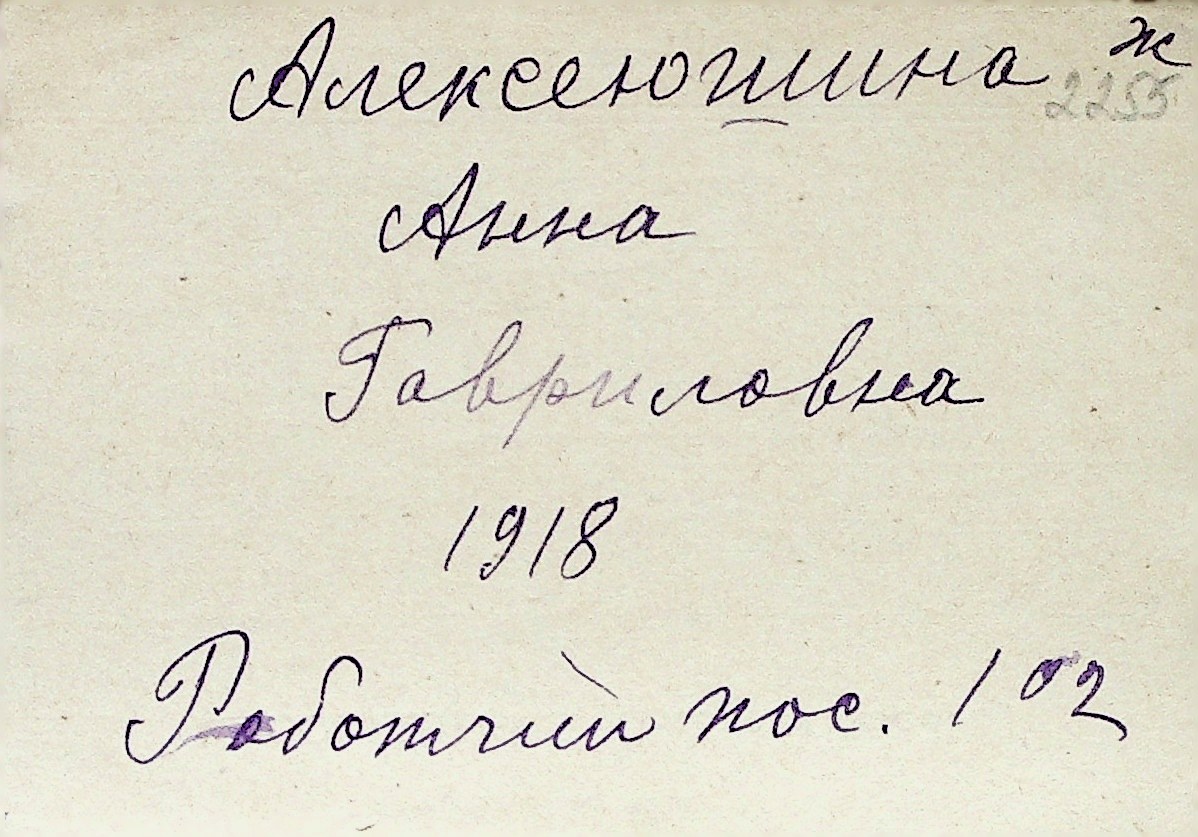 Алексеюшина ж
2255
Анна
Гавриловна
1918
Работчий пос. 102